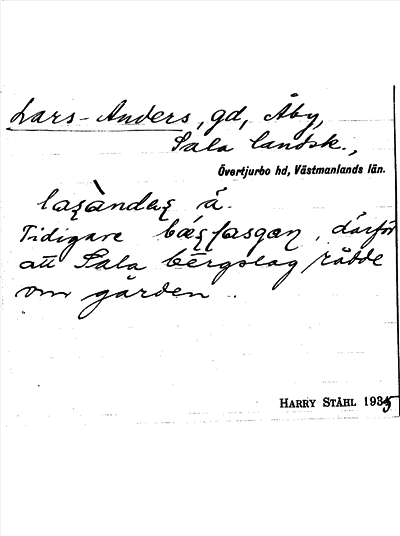 Lars-Anders, gd, Åby,
Sala landsk.,
Övertjurbo hd, Västmanlands län.
å.
Tidigare därför
att Sala bergslag rådde
om gården.
HARRY STÅHL 1935